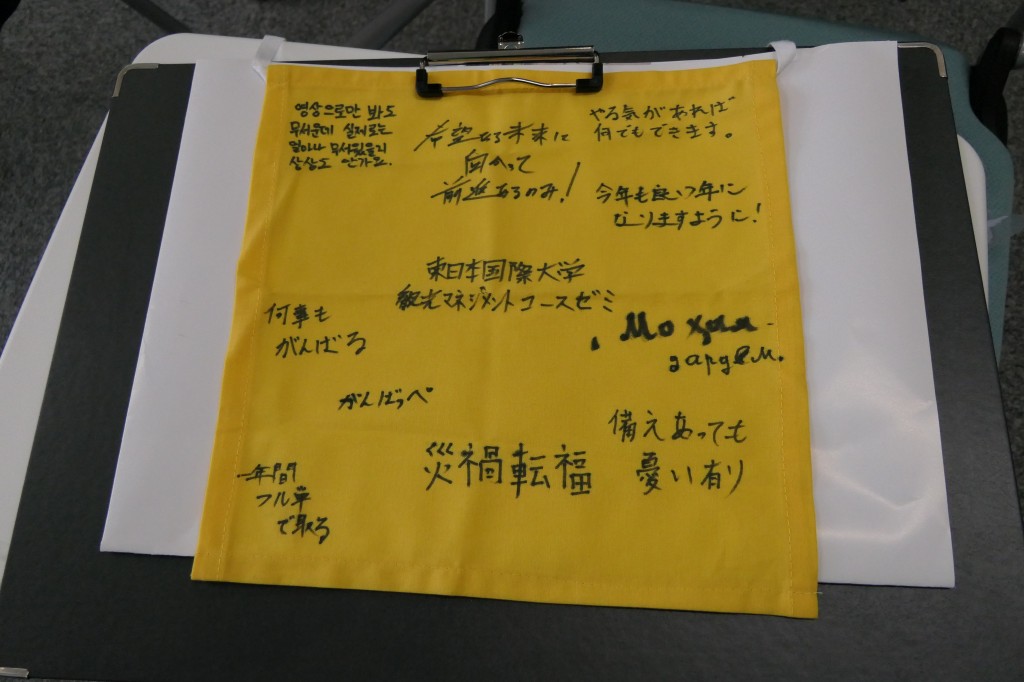 영상으로만 봐도
무서운데 실제로는
얼마나 무서웠을지
상상도 안가요.
希望ある未来に
向かって
前進あるのみ!
やる気があれば
何でもできます。
今年も良い年に
なりますように!
東日本国際大学
観光マネジメントコースゼミ
何事も
がんばる
がんばっぺ
備えあっても
憂い有り
災禍転福
年間
フル単
で取る